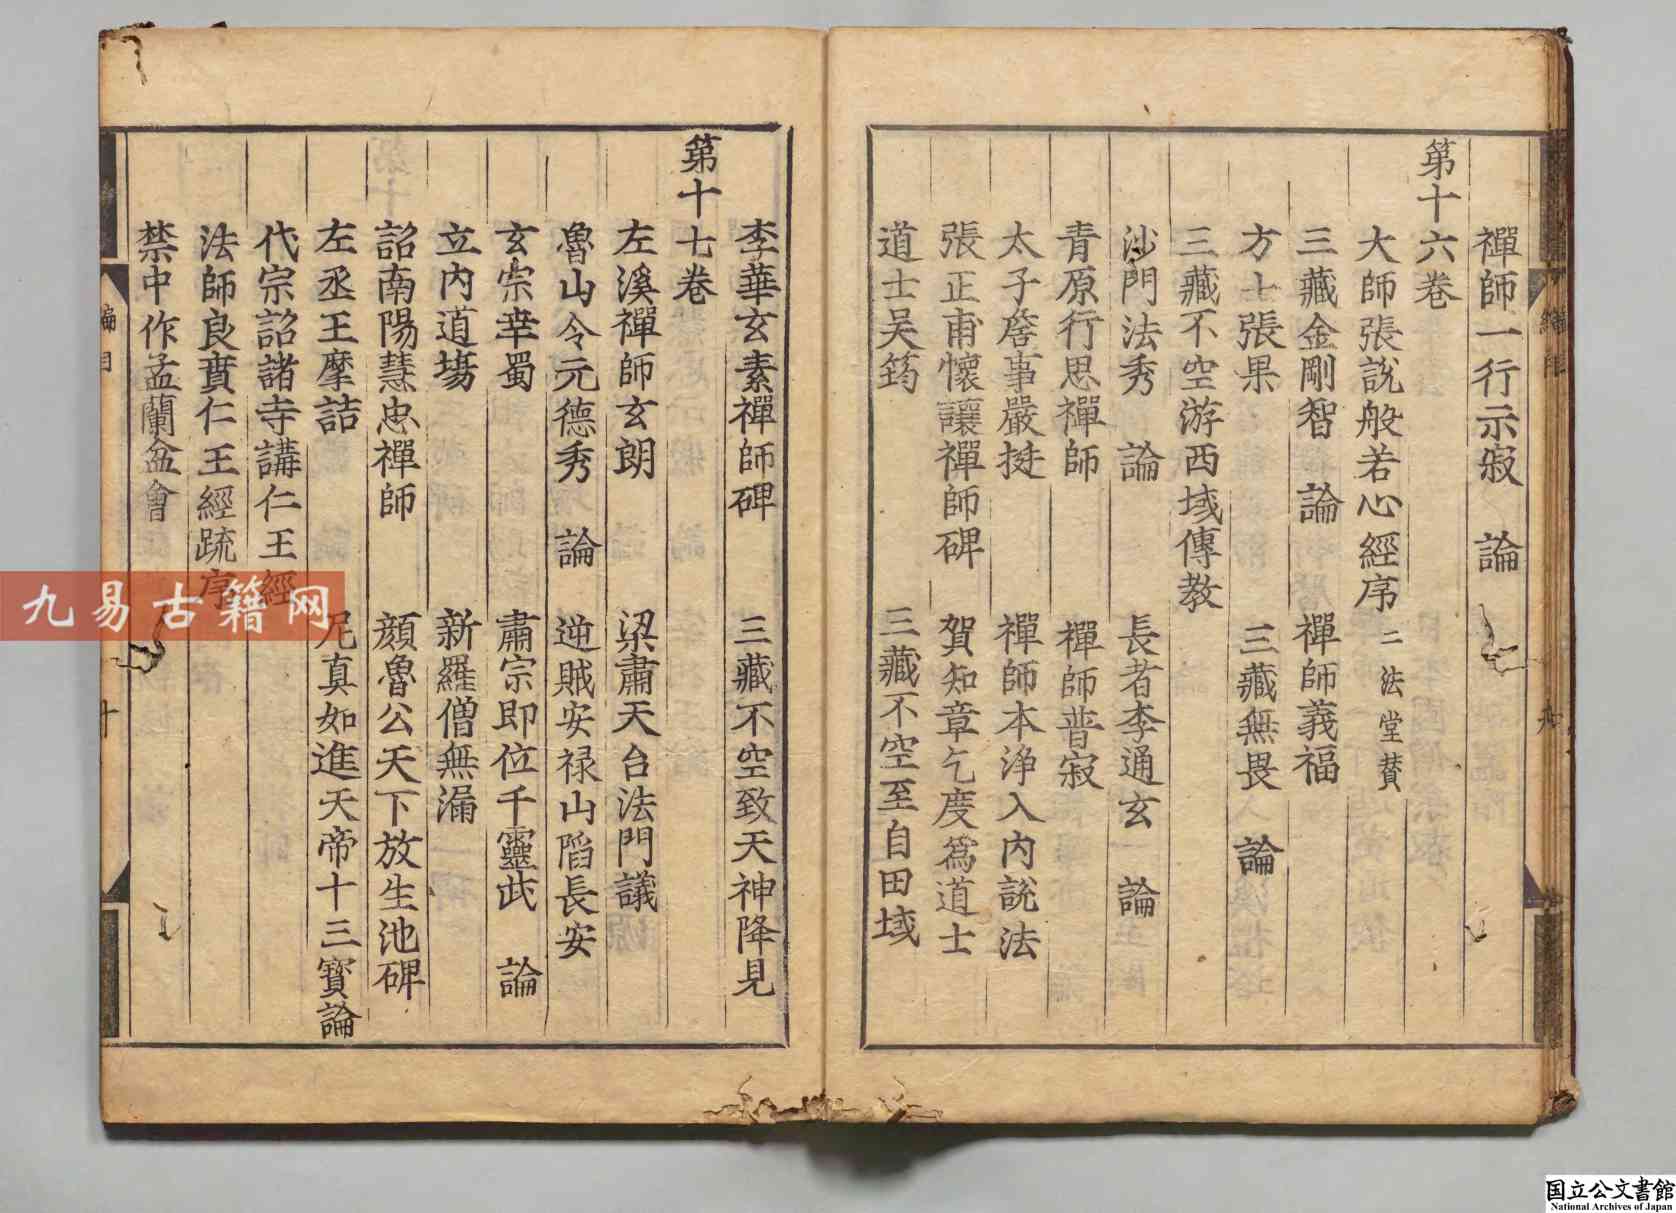 禪師一行示寂　論
第十六卷
大師張說般若心經序　二法堂贊
三藏金剛智　論　禪師義福
方士張果　三藏無畏　論
三藏不空游西域傳教
沙門法秀　論　長者李通玄　論
青原行思禪師　禪師普寂
太子詹事嚴挺　禪師本淨入內說法
張正甫懷讓禪師碑　賀知章乞度爲道士
道士吴筠　三藏不空至自田域
李華玄素禪師碑　三藏不空致天神降見
第十七卷
左溪禪師玄朗　梁肅天台法門議
魯山令元德秀　論　逆賊安禄山陷長安
玄宗幸蜀　肅宗即位千靈武　論
立內道場　新羅僧無漏
詔南陽慧忠禪師　顔魯公天下放生池碑
左丞王摩詰　尼真如進天帝十三寳論
代宗詔諸寺講仁王經
法師良賁仁王經疏序
禁中作孟蘭盆會
編目
十
九易古籍网
国立公文書館
National Archives of Japan